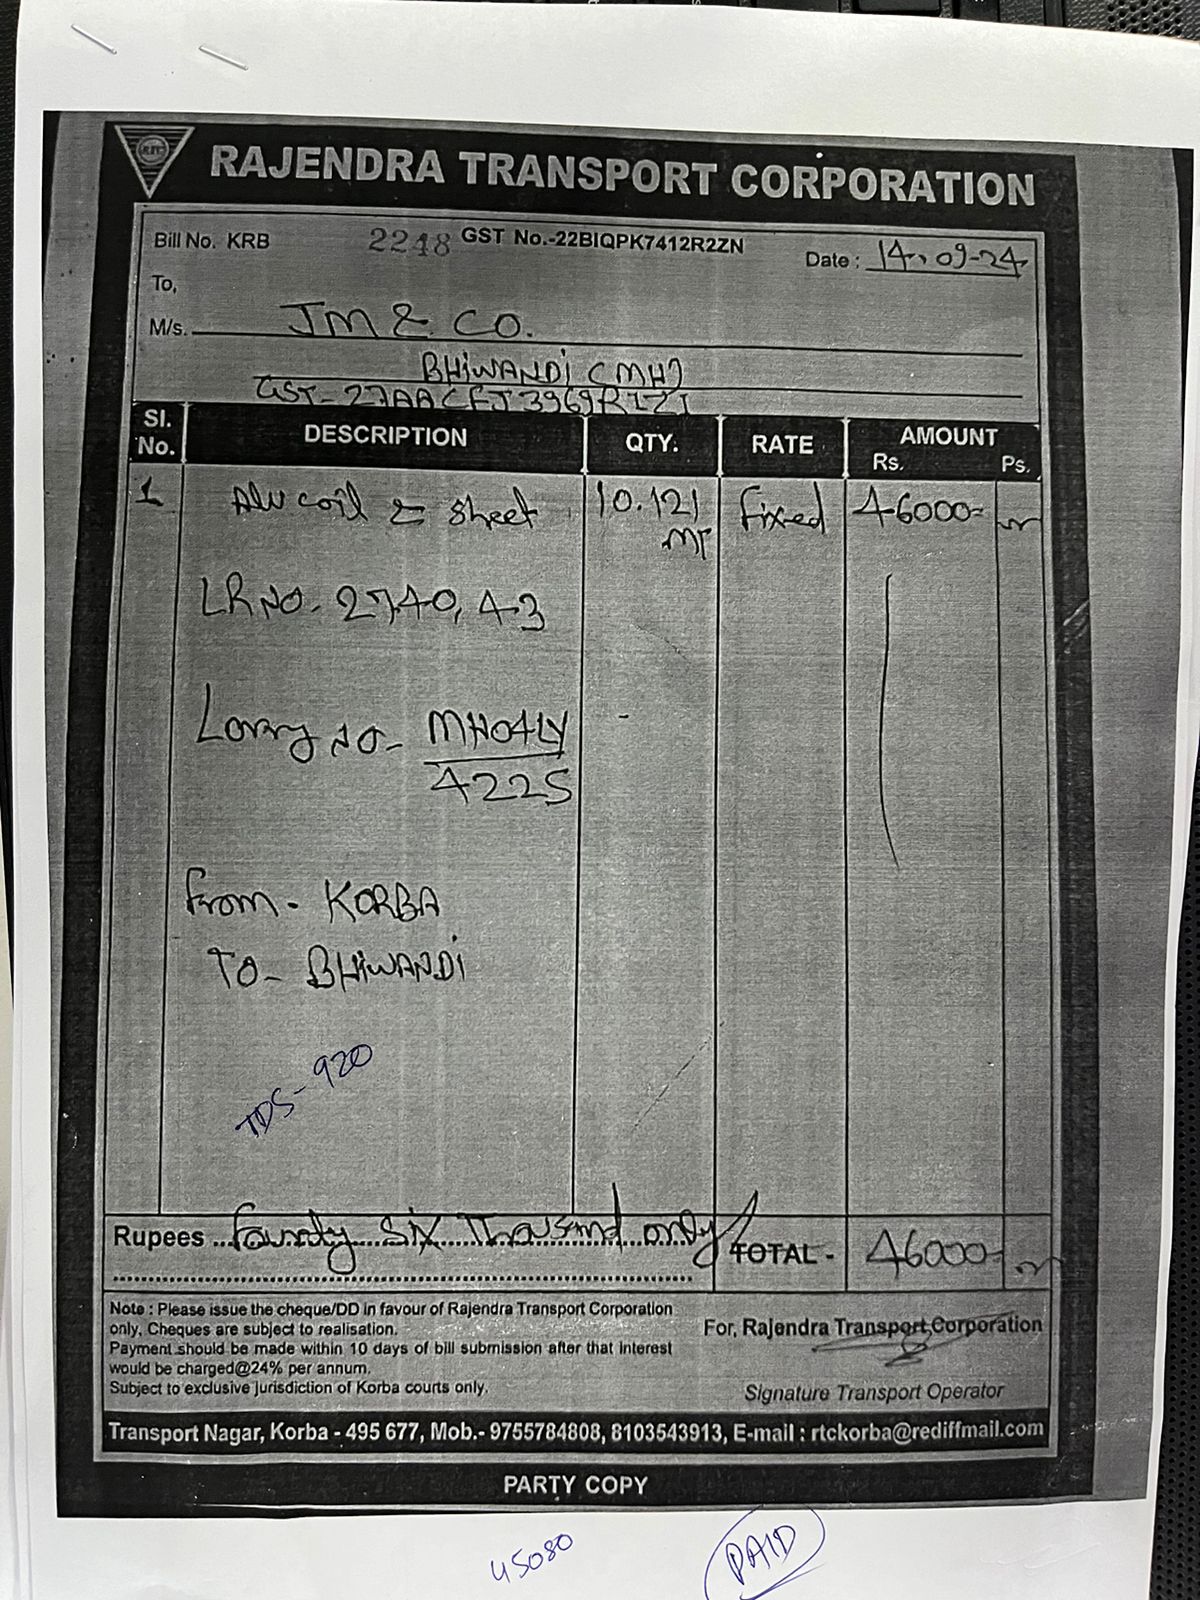 RTC
RAJENDRA TRANSPORT CORPORATION
Bill No. KRB 2248 GST No.-22BIQPK7412R2ZN
Date : 14-09-24
To,
M/s. JM & CO.
BHIWANDI (MH)
GST-27AACFJ3969R1ZI
Sl. No. DESCRIPTION QTY. RATE AMOUNT Rs. Ps.
1 Alu coil & sheet 10.121 MT fixed 46000=
LR NO. 2740, 43
Lorry NO- MH04LY
4225
From - KORBA
TO - BHIWANDI
TDS - 920
Rupees Fourty Six Thousand only TOTAL - 46000=
Note : Please issue the cheque/DD in favour of Rajendra Transport Corporation
only, Cheques are subject to realisation.
Payment should be made within 10 days of bill submission after that interest
would be charged@24% per annum.
Subject to exclusive jurisdiction of Korba courts only.
For, Rajendra Transport Corporation
Signature Transport Operator
Transport Nagar, Korba - 495 677, Mob.- 9755784808, 8103543913, E-mail : rtckorba@rediffmail.com
PARTY COPY
45080
PAID